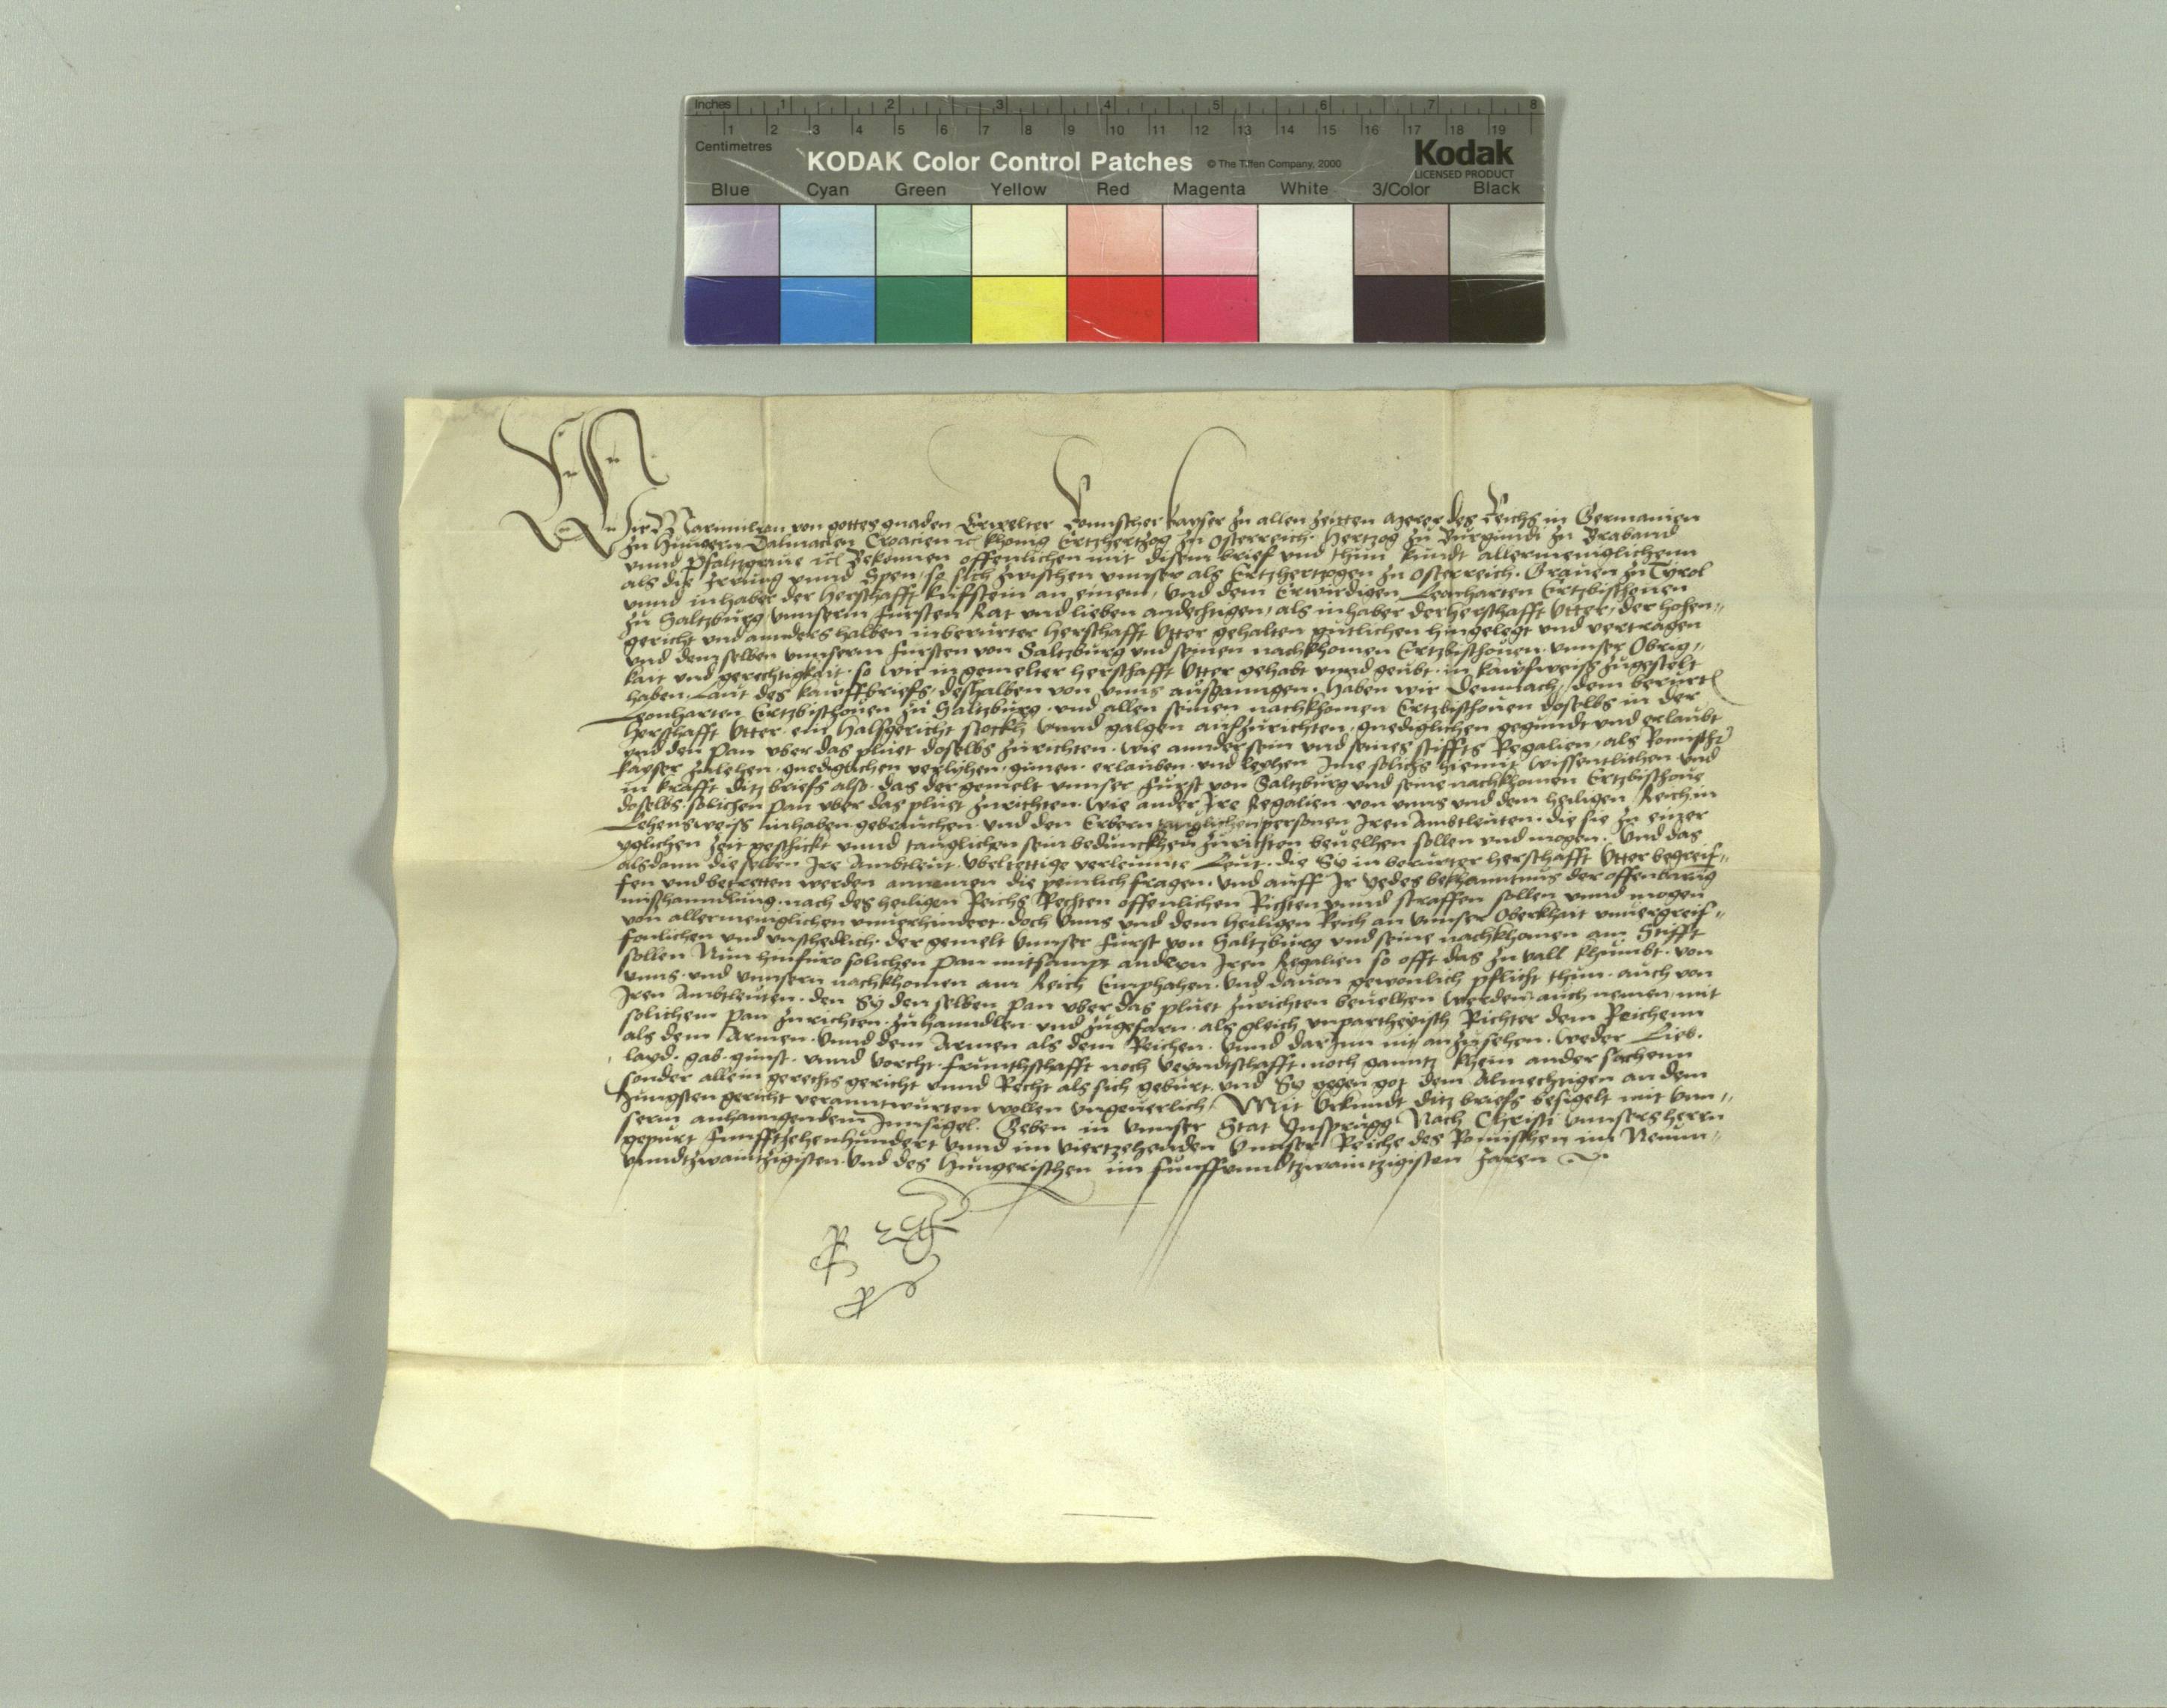 Inches 1 2 3 4 5 6 7 8
1 2 3 4 5 6 7 8 9 10 11 12 13 14 15 16 17 18 19
Centimetres
KODAK Color Control Patches © The Tiffen Company, 2000 Kodak
LICENSED PRODUCT
Blue Cyan Green Yellow Red Magenta White 3/Color Black
Wir Maximilian von gottes gnaden Erwelter Romischer kayser zu allen zeitten merer des Reichs in Germanien
zu Hungern Dalmacien Croacien rc khonig Ertzhertzog zu Osterreich. Hertzog zu Burgundi zu Braband
vnnd Pfaltzgraue rc Bekennen offenlichen mit disem brief vnd thun kundt allermenigclichenn
als die Irrung vnnd Spen so sich zwischen vnnser als Ertzhertzogen zu Osterreich. Grauen zu Tyrol
vnnd inhaber der herschafft kufstein an einem, vnd dem Erwirdigen Leonharten Ertzbischouen
zu Saltzburg vnnserm Fursten Rat vnd lieben andechtigen, als inhaber der herschafft Vtter, der hohen
gericht vnd annders halben in berurter herschafft Vtter gehalten gutlichen hingelegt vnd vertragen
vnd dem selben vnnserm Fursten von Saltzburg vnd seinen nachkhomen Ertzbischouen vnnser Obrig
kait vnd gerechtigkait so wir in gemelter herschafft Vtter gehabt vnnd geubt in kaufweiss zugestelt
haben. Laut des kauffbriefs, deshalben von vnns ausganngen. haben wir demnach, dem berurt
Leonharten Ertzbischouen zu Saltzburg vnd allen seinen nachkhomen Ertzbischouen doselbs in der
herschafft Vtter ein halsgericht stockh vnnd galgen aufzurichten gnediglichen gegundt vnd erlaubt
vnd den Pan vber das pluet doselbs zurichten. wie annder sein vnd seines stiffts Regalien, als Romischer
kayser zulehen, gnediglichen verlyhen, gunen erlauben vnd leyhen Ime solichs hiemit wissentlichen vnd
in krafft ditz briefs also. das der gemelt vnnser Furst von Saltzburg vnd seine nachkhomen Ertzbischoue
doselbs solichen Pan vber das pluet zurichten. wie ander Ire Regalien von vnns vnd dem heiligen Reich in
Lehensweiss inhaben gebrauchen vnd den Erbern tauglichen personen Iren Ambtleuten. die sie zu einer
yglichen zeit geschickt vnnd tauglichen sein bedunckhen zurichten beuelhen sollen vnd mogen. vnd das
alsdann die selben Ire Ambtleut. vbeltettige verleumte Leut. die Sy in berurter herschafft Vtter begreif
fen vnd betretten werden annemen die peinlich fragen. vnd auff Ir yedes bekhanntnus der offenbarng
misshanndlung. nach des heiligen Reichs Rechten offenlichen Richten vnnd straffen sollen vnnd mogen
von allermenigclichen vnuerhindert. doch vnns vnd dem heiligen Reich an vnnser Oberkhait vnuergreif
fenlichen vnd vnschedlich. der gemelt vnnser Furst von Saltzburg vnd seine nachkhomen am Stifft
sollen Nun hinfuro solichen Pan mitsampt andern Iren Regalien so offt das zu vall khumbt. von
vnns. vnd vnnsern nachkhomen am Reich Emphahen. vnd dauon gewonlich pflicht thun. auch von
Iren Ambtleuten. den Sy den selben Pan vber das pluet zurichten beuelhen werden. auch nemen mit
solichem Pan zurichten. zuhanndlen vnd zugefarn. als gleich vnpartheyisch Richter dem Reichenn
als dem Armen. vnnd dem Armen als dem Reichen. vnnd darInn nit anzusehen. weder Lieb.
layd. gab. gunst. vnnd vorcht. fruntschafft noch veyndtschafft. noch ganntz khein ander sachenn
sonder allein gerechts gericht vnnd Recht als sich geburt. vnd Sy gegen got dem Almechtigen an dem
Jungsten gericht veranntwurten wollen vngeuerlich. Mit Vrkundt ditz briefs besigelt mit vnn
serm anhanngendem Innsigel. Geben in vnnser Stat Ynsprugg Nach Christi vnnsers herrn
gepurt Funfftzehenhundert vnnd im viertzehenden Vnnser Reiche des Romischen im Neun
vnndtzwaintzigisten. vnd des hungerischen im funffvnndtzwaintzigisten Jaren